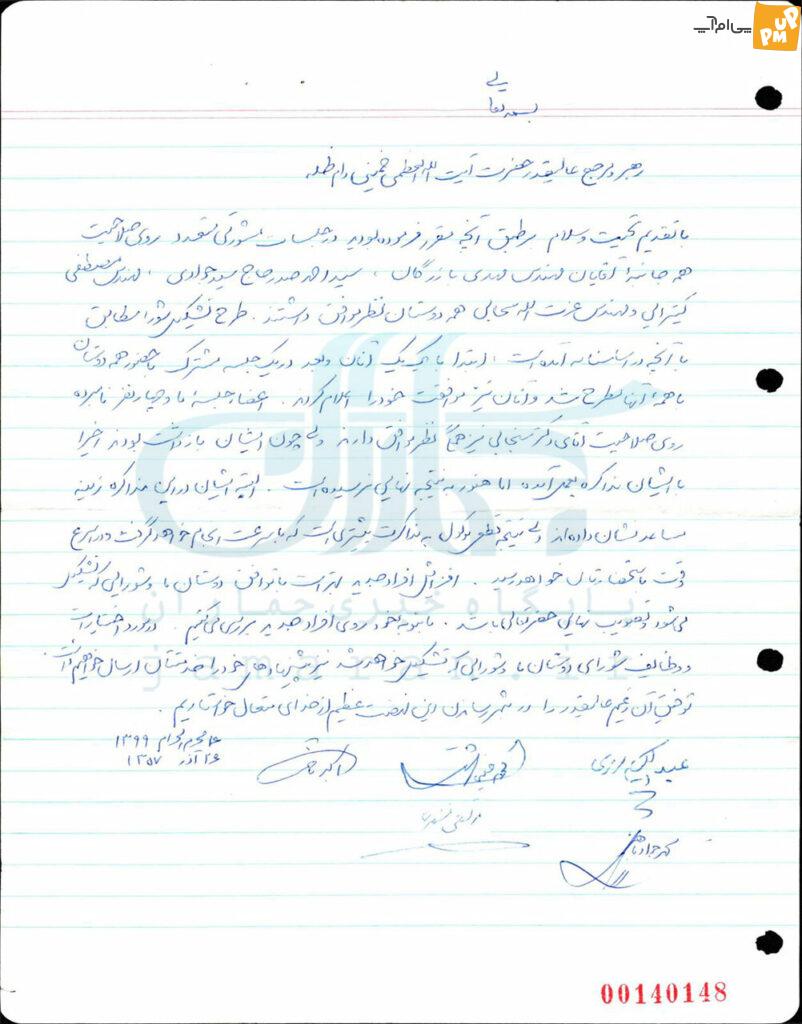 پی‌ام‌آپ
UP
PM
بسمه تعالی
رهبر و مرجع عالیقدر حضرت آیت الله العظمی خمینی دام ظله
با تقدیم تحیت و سلام بر طبق آنچه مقرر فرموده بودید در جلسات مشورتی متعدد روی صلاحیت
همه جانبهٔ آقایان مهندس مهدی بازرگان ، سید احمد صدر حاج سید جوادی ، مهندس مصطفی
کتیرائی و مهندس عزت الله سحابی همه دوستان نظر موافق داشتند . طرح تشکیل شورا مطابق
با آنچه در اساسنامه آمده است ، ابتدا با یک یک آنان و بعد در یک جلسه مشترک با حضور همه دوستان
با همهٔ آنها مطرح شد و آنان نیز موافقت خود را اعلام کردند . اعضاء جلسهٔ ما و چهار نفر نامبرده
روی صلاحیت آقای دکتر سنجابی نیز همگی نظر موافق دارند ولی چون ایشان بازداشت بودند اخیرا
با ایشان مذاکره بعمل آمده اما هنوز به نتیجه نهایی نرسیده است . البته ایشان در این مذاکره زمینه
مساعد نشان داده‌اند ولی نتیجه قطعی موکول به مذاکرات بیشتری است که با سرعت انجام خواهد گرفت و در اسرع
وقت باستحضارتان خواهد رسید . افزایش افراد جدید بهتر است با توافق دوستان ما و شورایی که تشکیل
می‌شود و تصویب نهایی حضرتعالی باشد . ما بنوبه خود روی افراد جدید بررسی می‌کنیم . در مورد اختیارات
و وظایف شورای دوستان ما و شورایی که تشکیل خواهد شد نیز پیشنهادهای خود را خدمتتان ارسال خواهیم داشت .
توفیق آن زعیم عالیقدر را در بثمر رساندن این نهضت عظیم از خدای متعال خواستاریم .
محرم الحرام ۱۳۹۹
۲۶ آذر ۱۳۵۷
عبدالکریم
اکبر
مرتضی مطهری
محمدجواد باهنر
پایگاه خبری جماران
jamaran.ir
00140148